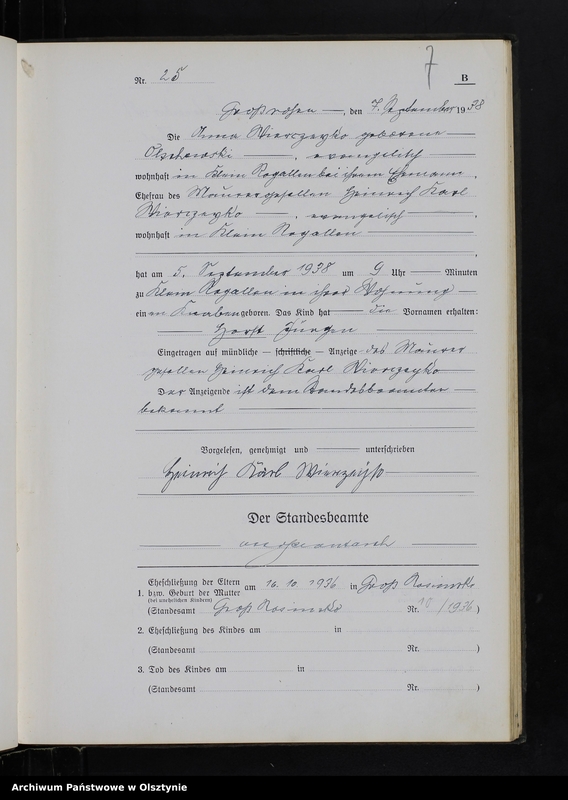 7
Nr. 25 B
Großrosen, den 7. September 1938
Die Anna Wierczeyko geborene
Olschewski, evangelisch
wohnhaft in Klein Rogallen bei ihrem Ehemann,
Ehefrau des Maurergesellen Heinrich Karl
Wierczeyko, evangelisch,
wohnhaft in Klein Rogallen
hat am 5. September 1938 um 9 Uhr Minuten
zu Klein Rogallen in ihrer Wohnung
einen Knaben geboren. Das Kind hat die Vornamen erhalten:
Horst Jürgen
Eingetragen auf mündliche – schriftliche – Anzeige des Maurer
gesellen Heinrich Karl Wierczeyko
Der Anzeigende ist dem Standesbeamten
bekannt
Vorgelesen, genehmigt und unterschrieben
Heinrich Karl
Der Standesbeamte
1. Eheschließung der Eltern
bzw. Geburt der Mutter
(bei unehelichen Kindern)
am 16.10.1936 in Groß
(Standesamt Groß Nr. 10/1936)
2. Eheschließung des Kindes am in
(Standesamt Nr. )
3. Tod des Kindes am in
(Standesamt Nr. )
Archiwum Państwowe w Olsztynie